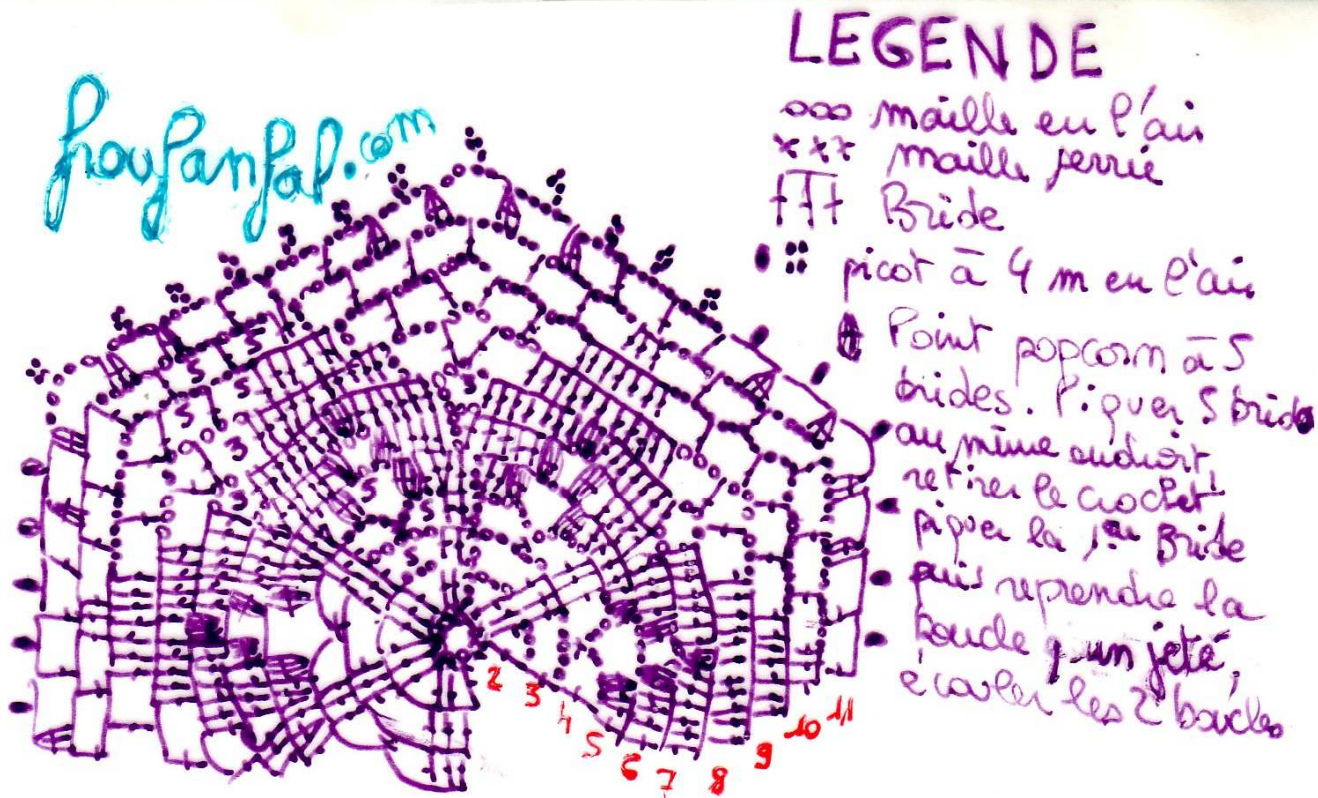 LEGENDE
maille en l'air
maille serrée
Bride
picot à 4 m en l'air
Point popcorn à 5
brides. Piquer 5 brides
au même endroit,
retirer le crochet
piquer la 1ère Bride
puis reprendre la
boucle 1 un jeté,
écouler les 2 boucles
5
5
5
5
3
3
3
5
3
5
5
5
2
3
4
5
6
7
8
9
10
11